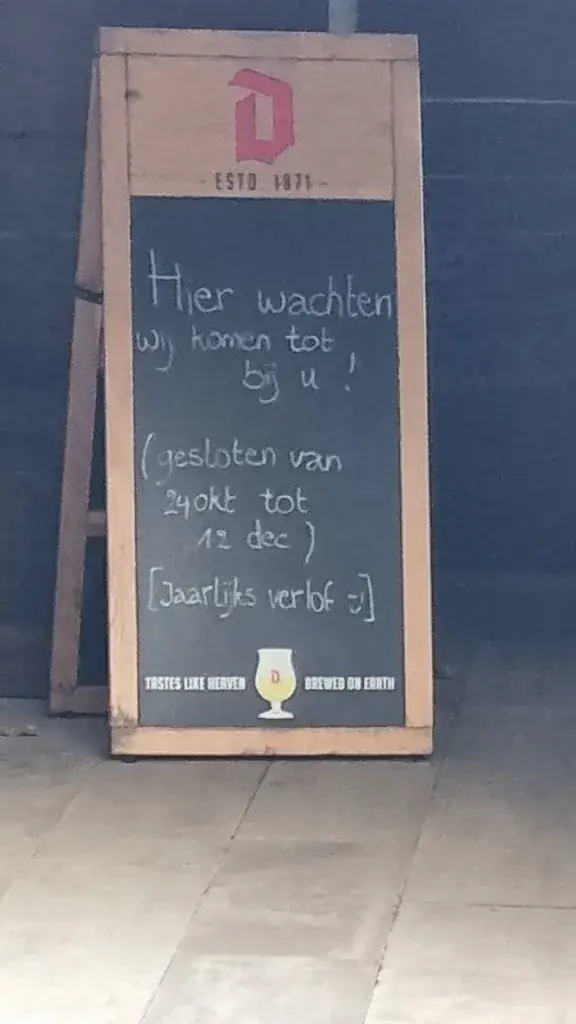 D
- ESTD 1871 -
Hier wachten
wij komen tot
bij u !
(gesloten van
24 okt tot
12 dec )
[Jaarlijks verlof :)]
TASTES LIKE HEAVEN D BREWED ON EARTH